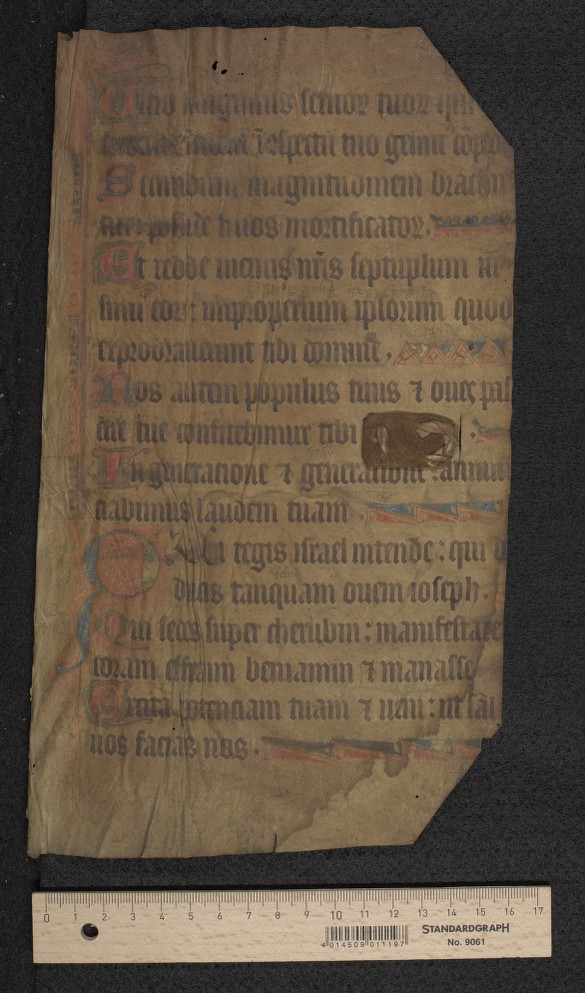 sanguinis seruoꝝ tuoꝝ
ī cōspectu tuo gemit
Secundum magnitudinem brachii
tui: posside filios mortificatoꝝ.
Et redde uicinis nr̄is septuplum in
sinu eoꝝ: improperium ipsorum quod
exprobrauerunt tibi domine.
Nos autem populus tuus ⁊ oues pas
cue tue confitebimur tibi
In generatione ⁊ generatione: annun
ciabimus laudem tuam
Qui regis israel intende: qui
ducis tanquam ouem ioseph.
Qui sedes super cherubin: manifestare
coram effraim beniamin ⁊ manasse
Excita potenciam tuam ⁊ ueni: ut sal
nos facias nos.
0 1 2 3 4 5 6 7 8 9 10 11 12 13 14 15 16 17
4 014509 011197
STANDARDGRAPH
No. 9061